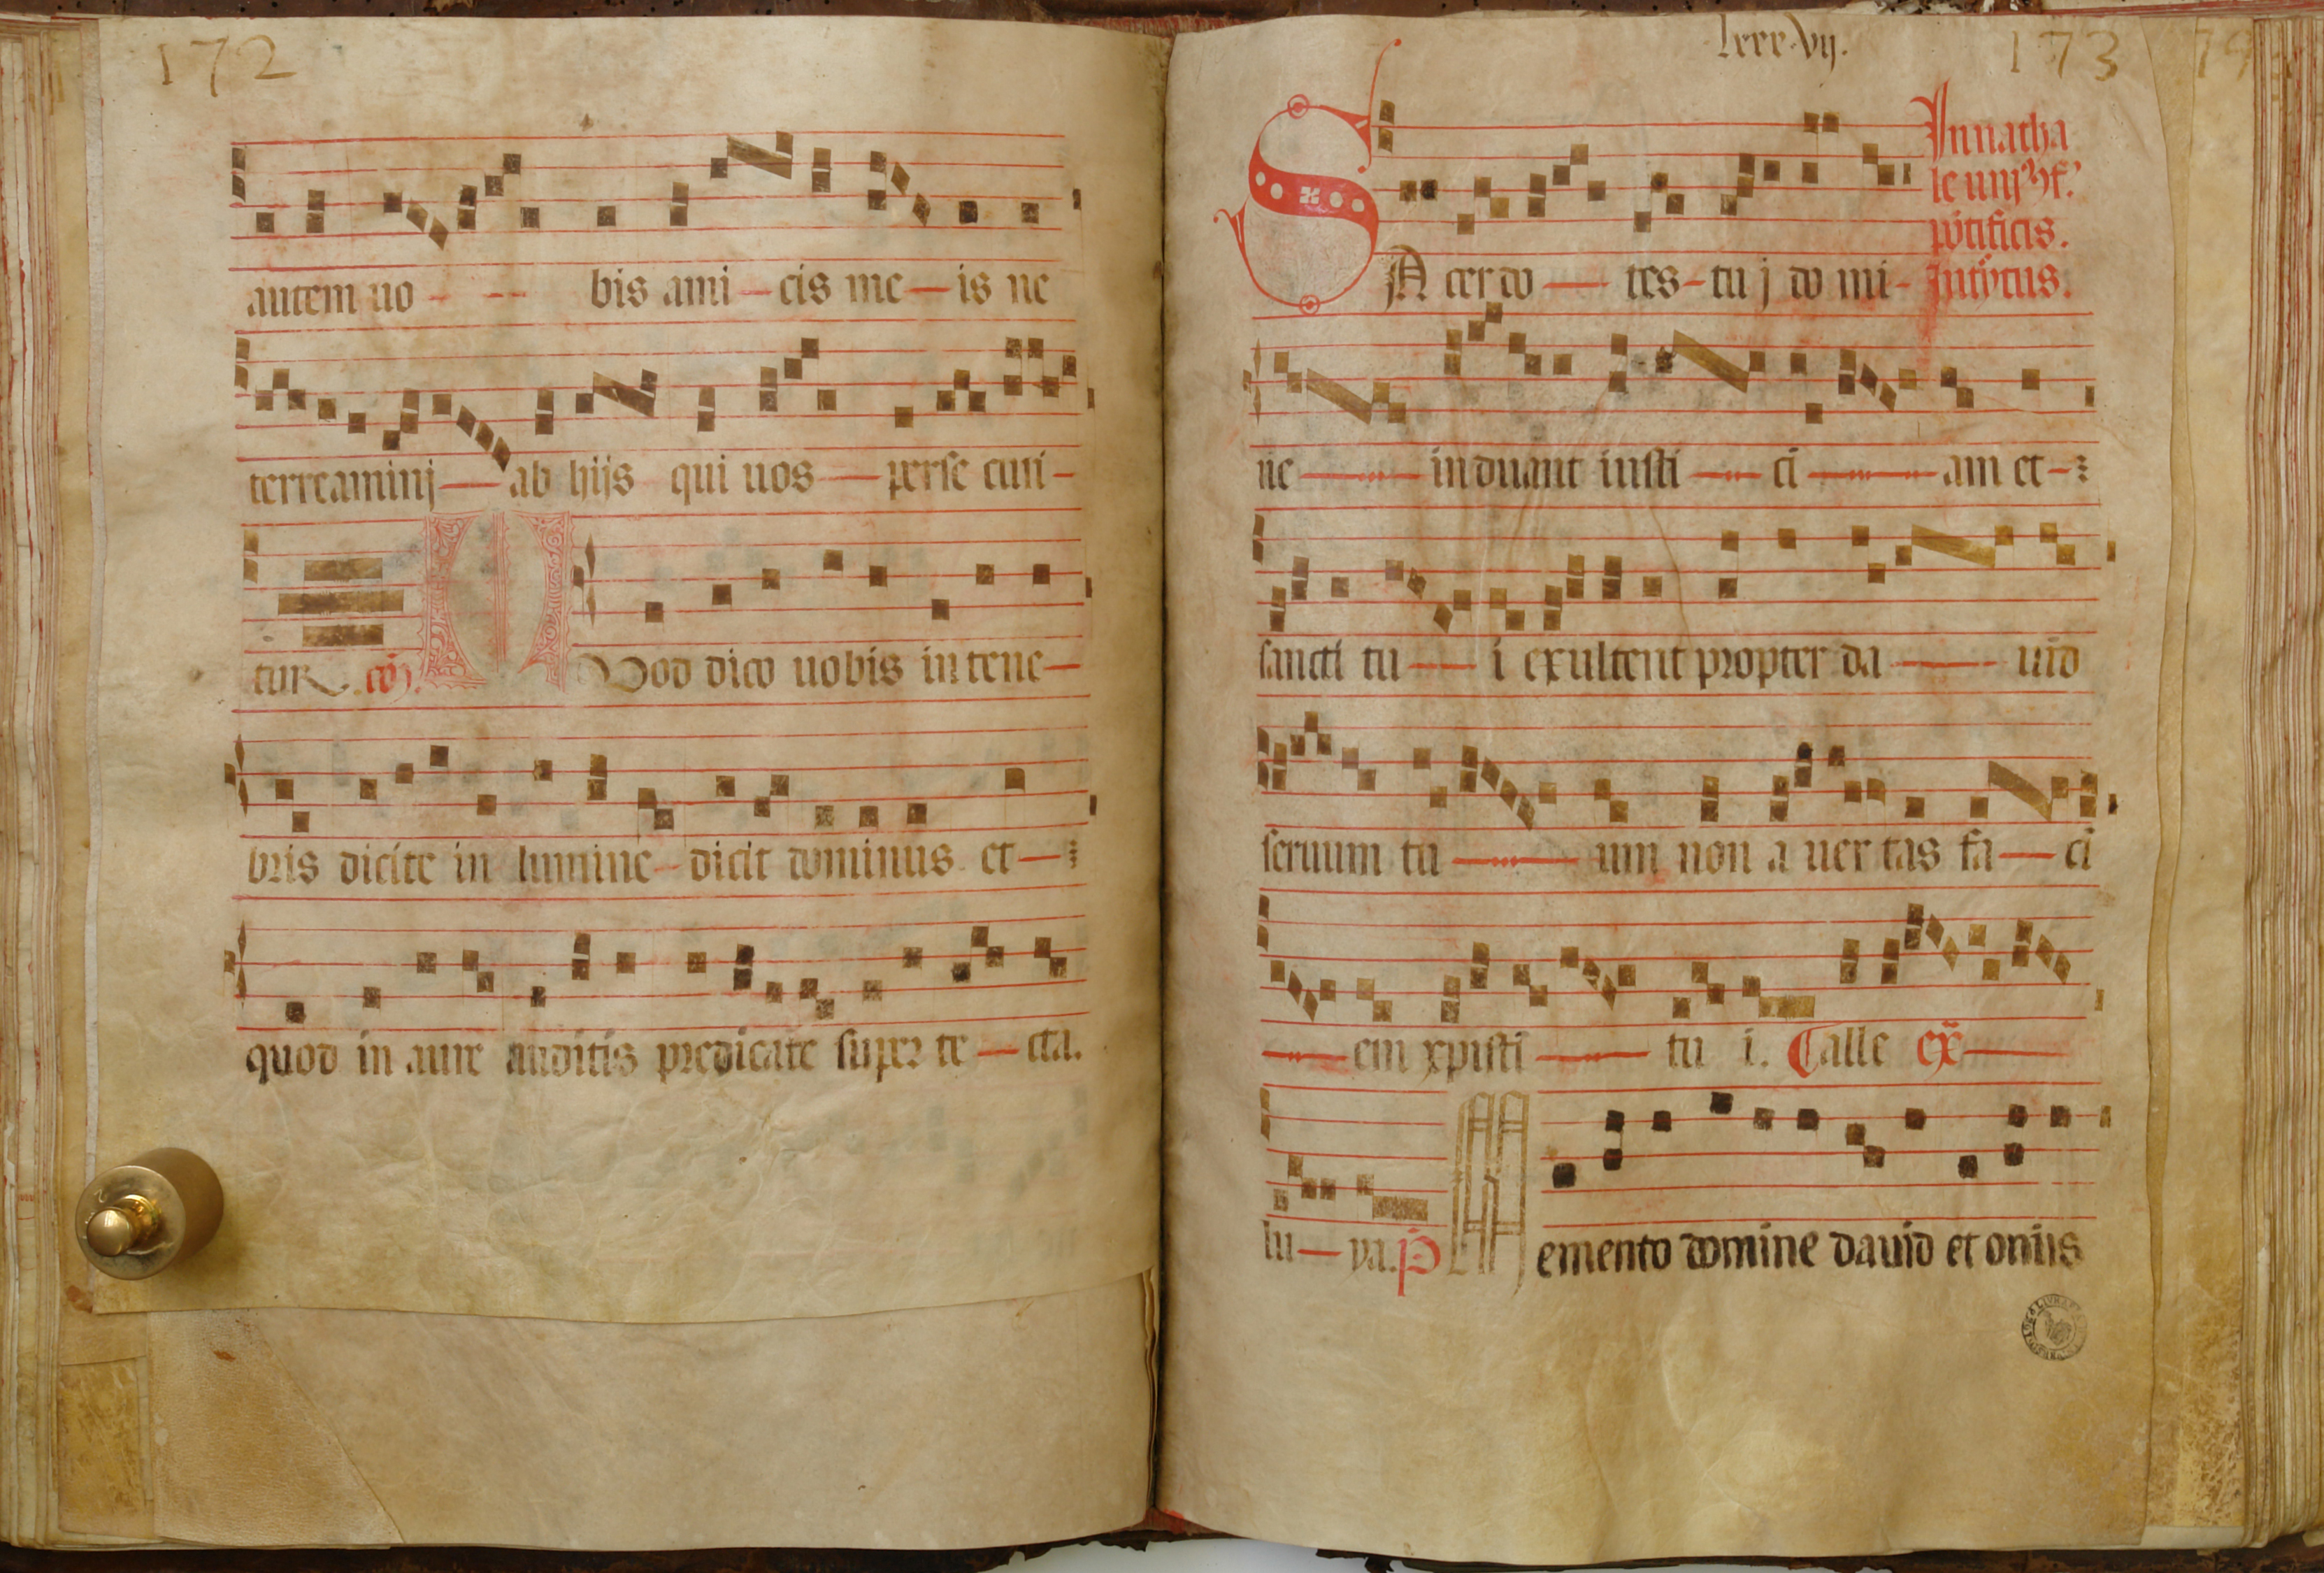 172
autem uo - -- bis ami - cis me - is ne
terreaminj - ab hijs qui uos - perse cuti -
tur. cō. Quod dico uobis in tene -
bris dicite in lumine - dicit dominus et -
quod in aure auditis predicate super te - cta.
lxxx.vij. 173
In natha
le unj9
pōtificis.
Introytus.
SA cerdo - tes - tu j do mi -
ne - induant iusti - ci - am et -
sancti tu - i exultent propter da - uid
seruum tu - um non a uer tas fa - ci
- em xpisti - tu i. Call'e ex -
lu - ya. p̄ Memento domine dauid et om̄is